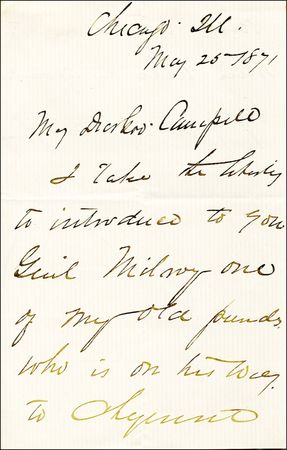 Chicago. Ill.
May 25 - 1871
My Dear Campbell
I Take the liberty
to introduce to you
Genl Milroy one
of my old friends.
who is on his way
to Cheyenne